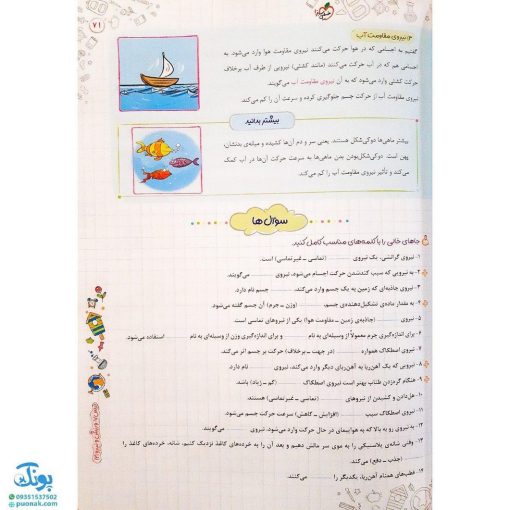 ۷۱
۳) نیروی مقاومت آب
گفتیم به اجسامی که در هوا حرکت می‌کنند نیروی مقاومت هوا وارد می‌شود. به
اجسامی هم که در آب حرکت می‌کنند (مانند کشتی) نیرویی از طرف آب برخلاف
حرکت کشتی وارد می‌شود که به آن نیروی مقاومت آب می‌گویند.
نیروی مقاومت آب از حرکت جسم جلوگیری کرده و سرعت آن را کم می‌کند.
بیشتر بدانید
بیشتر ماهی‌ها دوکی‌شکل هستند. یعنی سر و دم آن‌ها کشیده و میانه‌ی بدنشان،
پهن است. دوکی‌شکل‌بودن بدن ماهی‌ها به سرعت حرکت آن‌ها در آب کمک
می‌کند و تأثیر نیروی مقاومت آب را کم می‌کند.
سوال‌ها
جاهای خالی را با کلمه‌های مناسب کامل کنید.
۱- نیروی گرانشی، یک نیروی (تماسی ـ غیرتماسی) است.
۲- به نیرویی که سبب کندشدن حرکت اجسام می‌شود، نیروی می‌گویند.
۳- نیروی جاذبه‌ای که زمین به یک جسم وارد می‌کند، جسم نام دارد.
۴- به مقدار ماده‌ی تشکیل‌دهنده‌ی جسم، (وزن ـ جرم) آن جسم گفته می‌شود.
۵- نیروی (جاذبه‌ی زمین ـ مقاومت هوا) یکی از نیروهای تماسی است.
۶- برای اندازه‌گیری جرم معمولاً از وسیله‌ای به نام و برای اندازه‌گیری وزن از وسیله‌ای به نام استفاده می‌شود.
۷- نیروی اصطکاک همواره (در جهت ـ برخلاف) حرکت بر جسم اثر می‌کند.
۸- نیرویی که یک آهن‌ربا به آهن‌ربای دیگر وارد می‌کند، نیروی نام دارد.
۹- هنگام گره‌زدن طناب بهتر است نیروی اصطکاک (کم ـ زیاد) باشد.
۱۰- هل‌دادن و کشیدن از نیروهای (تماسی ـ غیرتماسی) هستند.
۱۱- نیروی اصطکاک سبب (افزایش ـ کاهش) سرعت حرکت جسم می‌شود.
۱۲- به نیروی رو به بالا که به هواپیمای در حال حرکت وارد می‌شود، نیروی می‌گویند.
۱۳- وقتی شانه‌ی پلاستیکی را به موی سر مالش دهیم و بعد آن را به خرده‌های کاغذ نزدیک کنیم، شانه، خرده‌های کاغذ را
(جذب ـ دفع) می‌کند.
۱۴- قطب‌های همنام آهن‌ربا، یکدیگر را می‌کنند.
پونک
09351537502
puonak.com